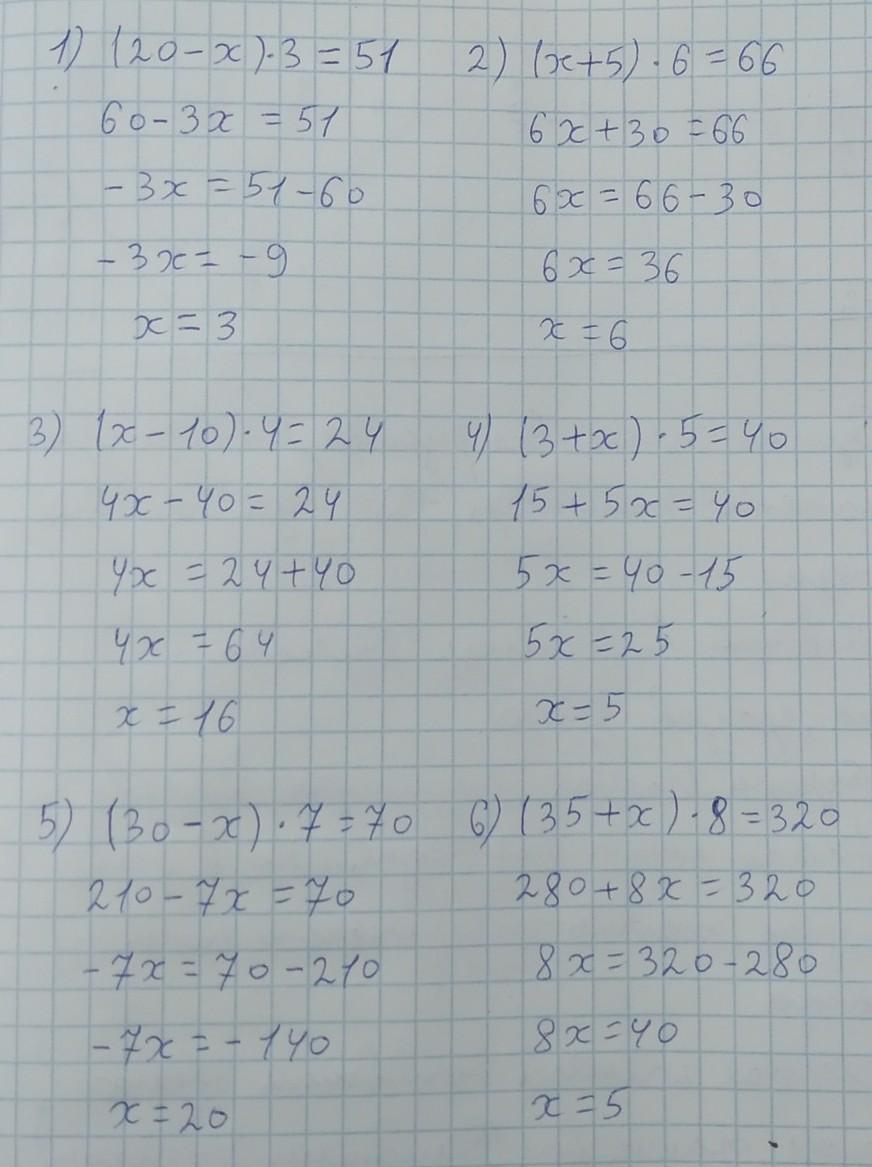 1) (20-x)·3=51
60-3x=51
-3x=51-60
-3x=-9
x=3
2) (x+5)·6=66
6x+30=66
6x=66-30
6x=36
x=6
3) (x-10)·4=24
4x-40=24
4x=24+40
4x=64
x=16
4) (3+x)·5=40
15+5x=40
5x=40-15
5x=25
x=5
5) (30-x)·7=70
210-7x=70
-7x=70-210
-7x=-140
x=20
6) (35+x)·8=320
280+8x=320
8x=320-280
8x=40
x=5